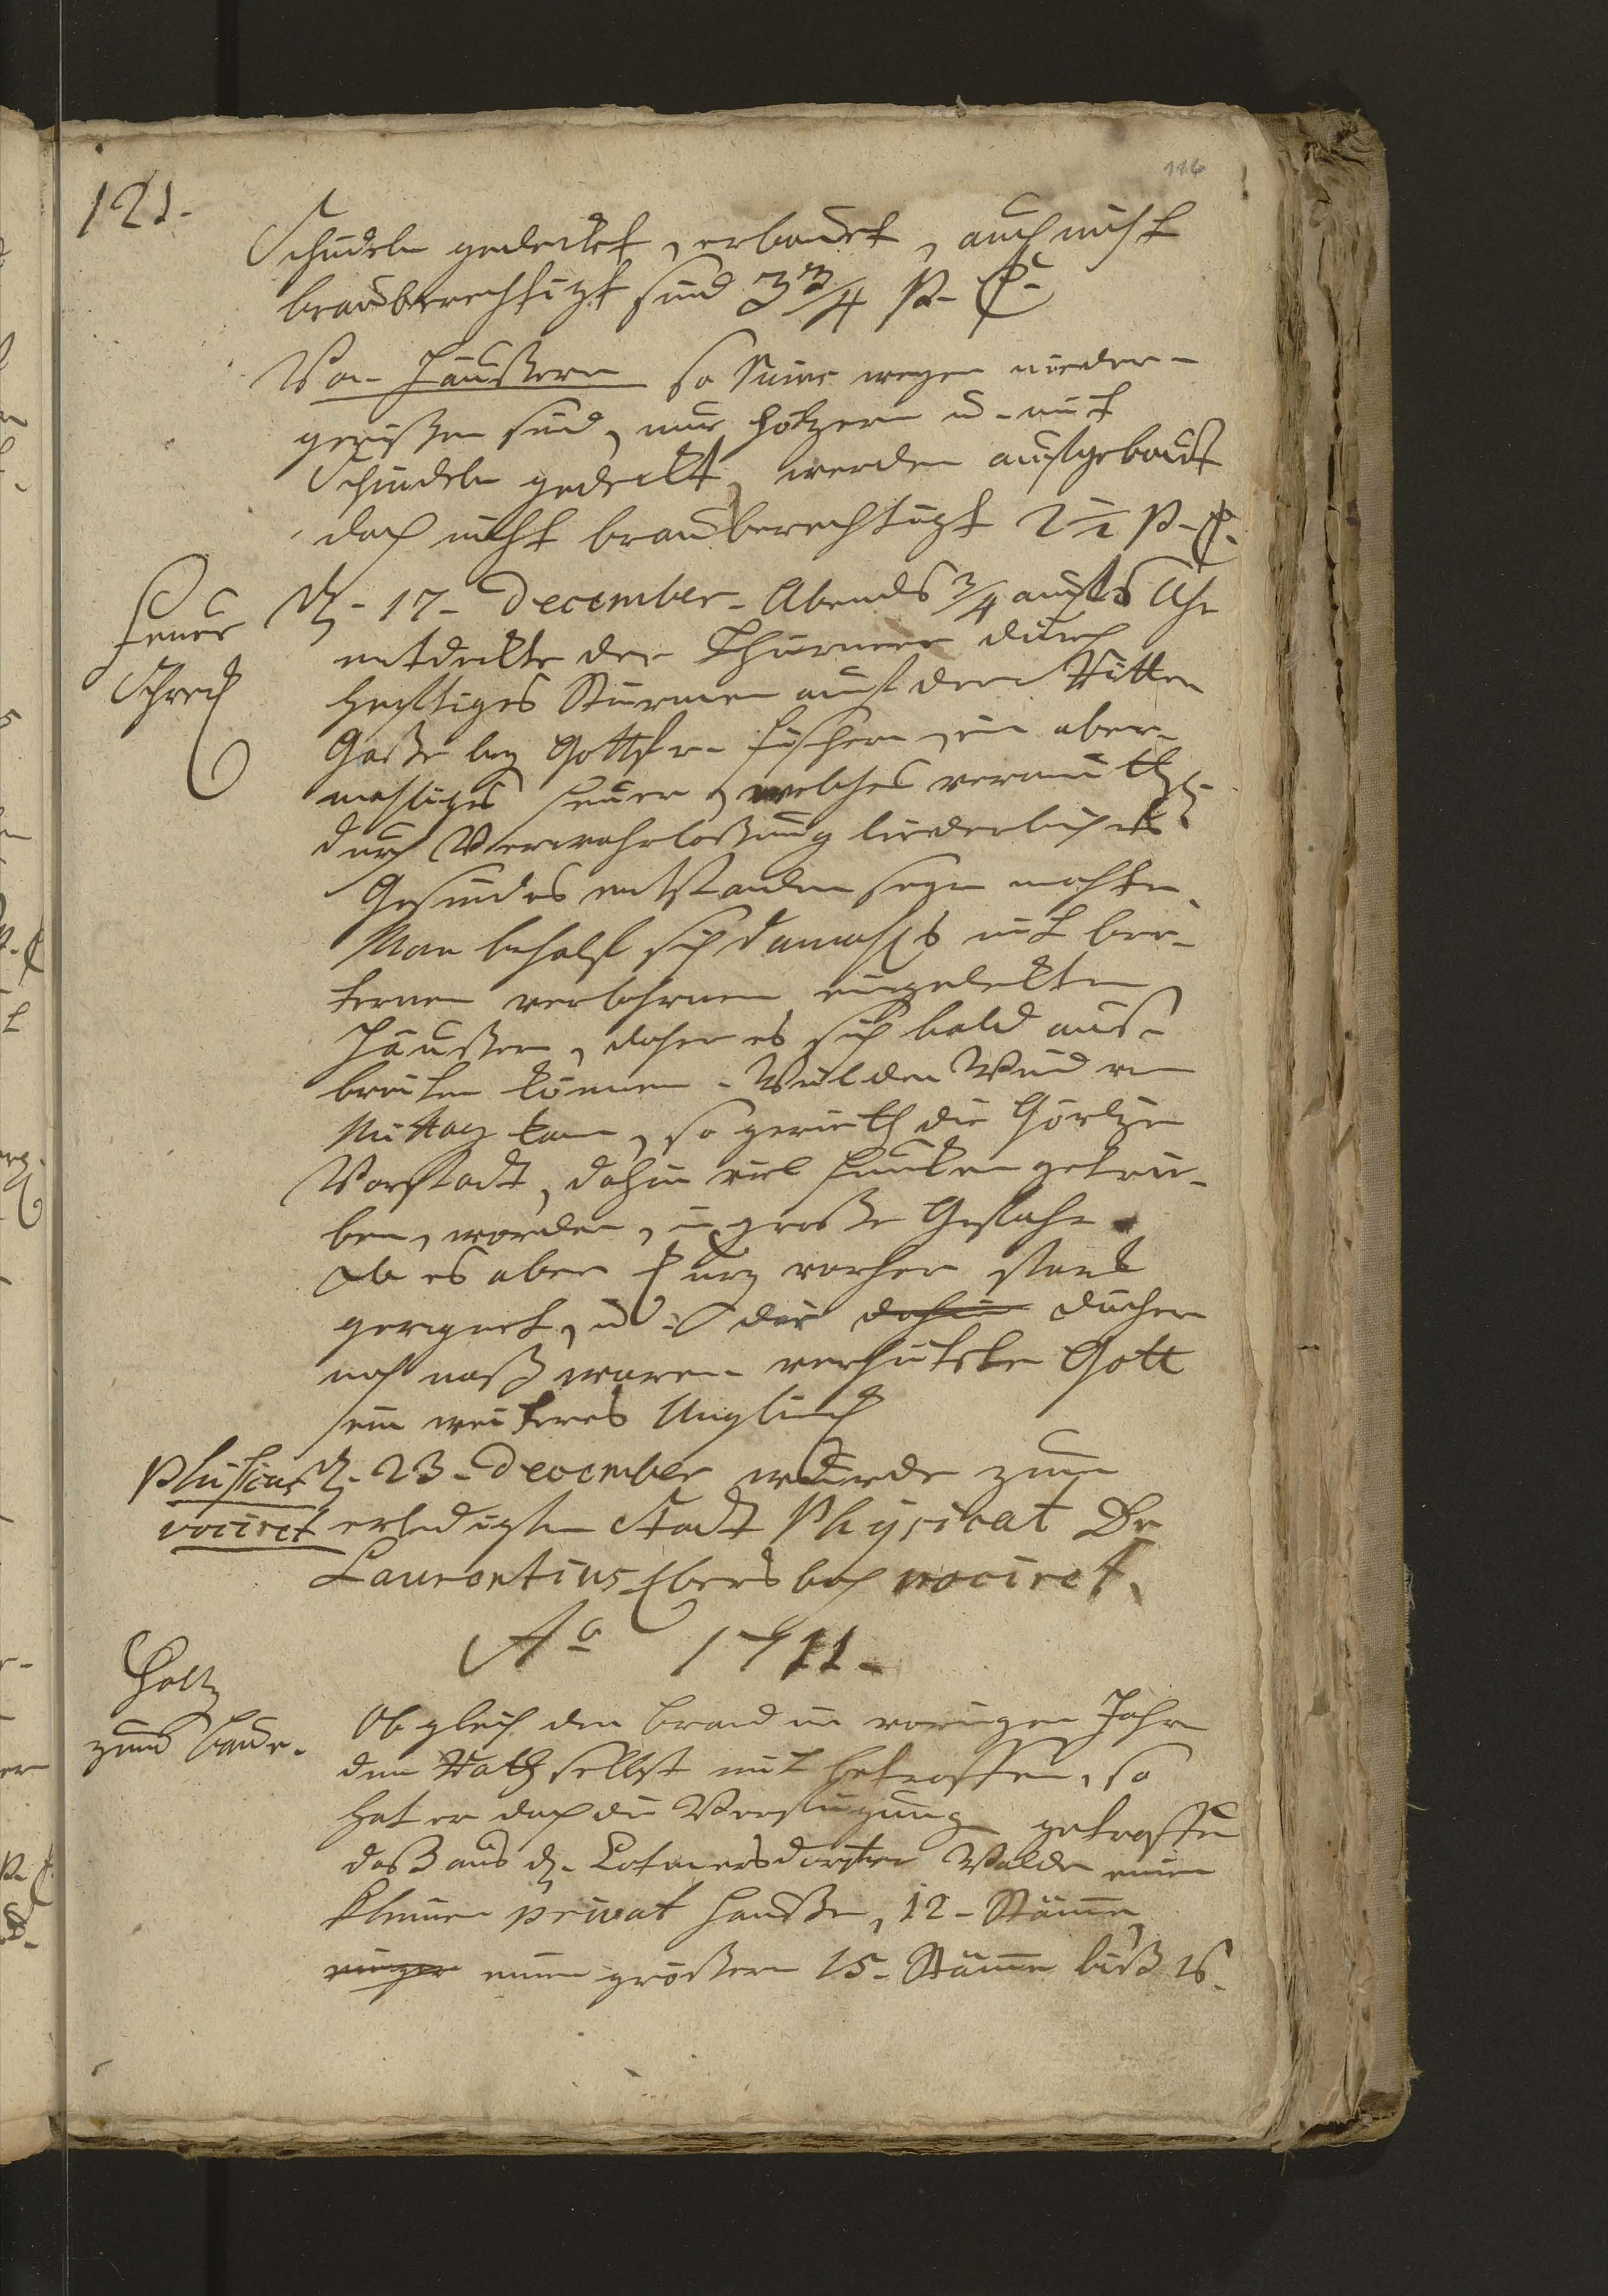 116
121.
Schindeln gedecket, erbauet, auch nicht
braubberechtigt sind 3 3/4 P. C.
Von Häußern so Feuers wegen nieder-
gerißen sind, nur höltzern u. mit
Schindeln gedeckt, werden aufgebaut
doch nicht brauberechtigt 2 1/2 P. C.
Feuer
Schreck
d. 17. December. Abends 3/4 auf 8 Uhr
entdeckte der Thürmer durch
hefftiges Stürmen auf der Ritter
Gaße bey Gottfr. Fischern, ein aber-
mahliges Feuer, welches vermuthl.
durch Verwahrloßung liederliches
Gesindes entstanden seyn mochte.
Man behalf sich damahls mit
verlohrnen eingedeckten
Häußern, daher es sich bald aus-
breiten können. Weil der Wind von
Mittag kam, so gerieth die Görlizer
Vorstadt, dahin viel Funken getrie-
ben, worden, in große Gefahr.
Da es aber kurz vorher stark
geregnet, u. die dahin Dächer
noch naß waren verhütete Gott
ein weiteres Unglück
Phisicus
vociret
d. 23. December wurde zum
erledigten Stadt Physicat Dr
Laurentius Ebersbach vociret.
Ao 1711.
Holtz
zum Baue.
Ob gleich der Brand im vorigen Jahre
den Rath selbst mit betroffen, so
hat er doch die Verfügung getroffen
daß aus d. Walde einem
kleinen privat Hauße, 12. Stäme,
einem größern 15. Stäme biß 18.